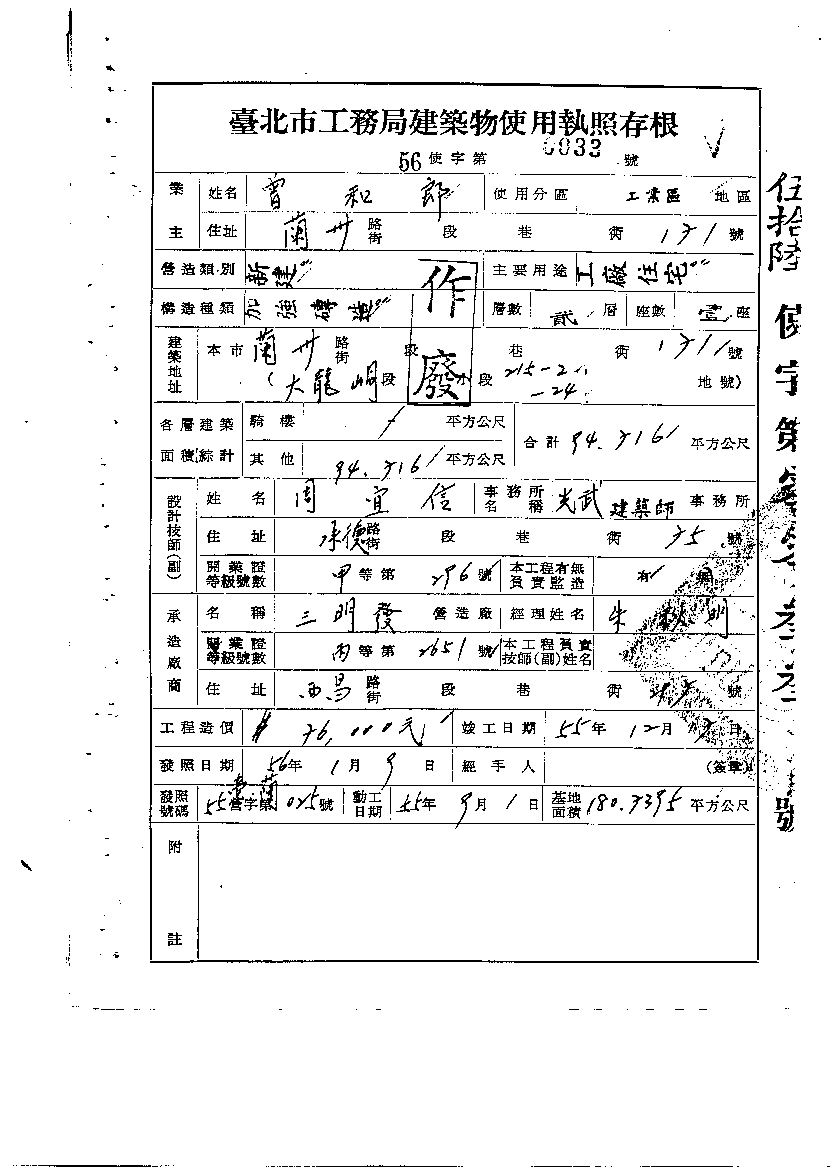 臺北市工務局建築物使用執照存根
56使字第 0033 號
業主 姓名 曾和郎 使用分區 工業區 地區
住址 蘭州 路街 段 巷 街 131 號
營造類別 新建 主要用途 工廠住宅
構造種類 加強磚造 層數 貳層 座數 壹座
作廢
建築地址 本市 蘭州 路街 段 巷 街 131 號
(大龍峒段 小段 215-21 -24 地號)
各層建築面積綜計 騎樓 / 平方公尺 合計 94.3161 平方公尺
其他 94.3161 平方公尺
設計技師(副) 姓名 周宜信 事務所名稱 光武建築師 事務所
住址 承德路街 段 巷 街 35 號
開業證等級號數 甲等第 296 號 本工程有無負責監造 有
承造廠商 名稱 三明發 營造廠 經理姓名 朱 明
開業證等級號數 丙等第 2651 號 本工程負責技師(副)姓名
住址 西昌 路街 段 巷 街 號
工程造價 $ 36,000元 竣工日期 55年 12月 日
發照日期 56年 1月 9日 經手人 (簽章)
發照號碼 55營字第 025 號 動工日期 55年 9月 1日 基地面積 180.3395 平方公尺
附註
伍拾陸使字第 號